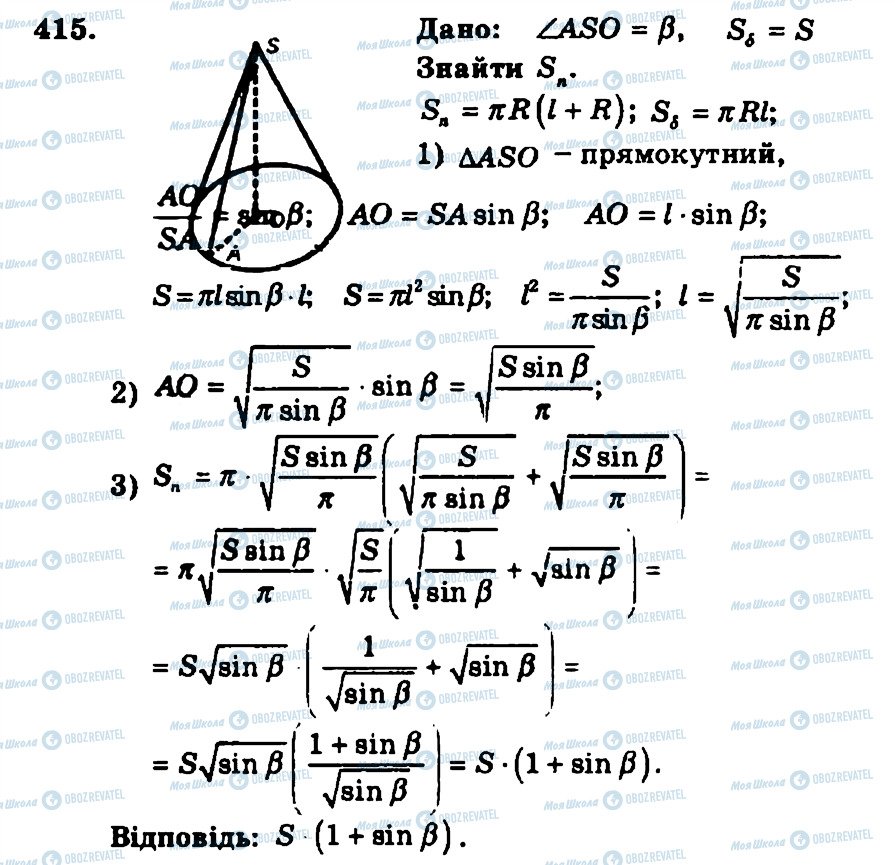 415.
Дано: ∠ASO = β, S_б = S
Знайти S_п.
S_п = πR(l + R); S_б = πRl;
1) △ASO – прямокутний,
AO/SA = sin β; AO = SA sin β; AO = l · sin β;
S = πl sin β · l; S = πl² sin β; l² = S/(π sin β); l = √(S/(π sin β));
2) AO = √(S/(π sin β)) · sin β = √(S sin β/π);
3) S_п = π · √(S sin β/π) (√(S/(π sin β)) + √(S sin β/π)) =
= π√(S sin β/π) · √(S/π) (√(1/sin β) + √(sin β)) =
= S√(sin β) · (1/√(sin β) + √(sin β)) =
= S√(sin β) ((1 + sin β)/√(sin β)) = S · (1 + sin β).
Відповідь: S · (1 + sin β).
S
O
A
Моя Школа OBOZREVATEL